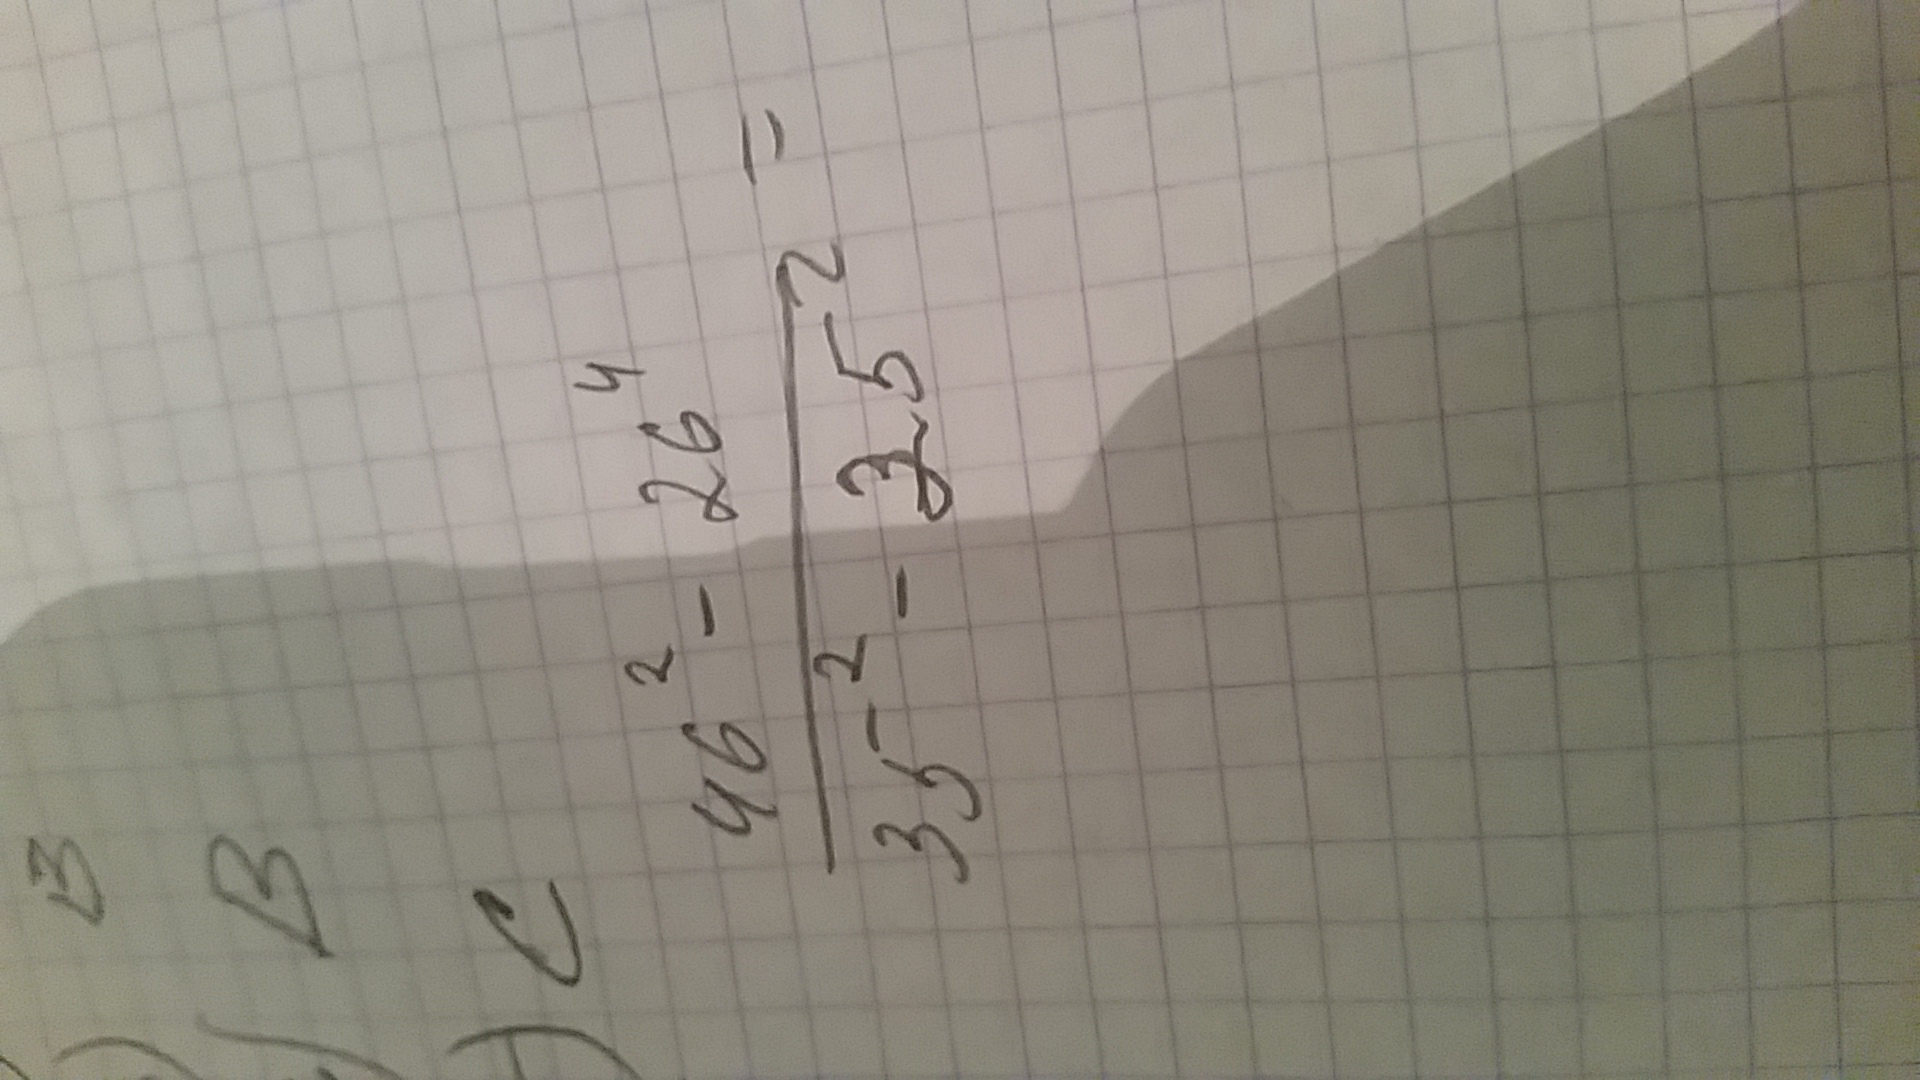 B
) B
) C
46² - 26⁴ =
35² - 325²